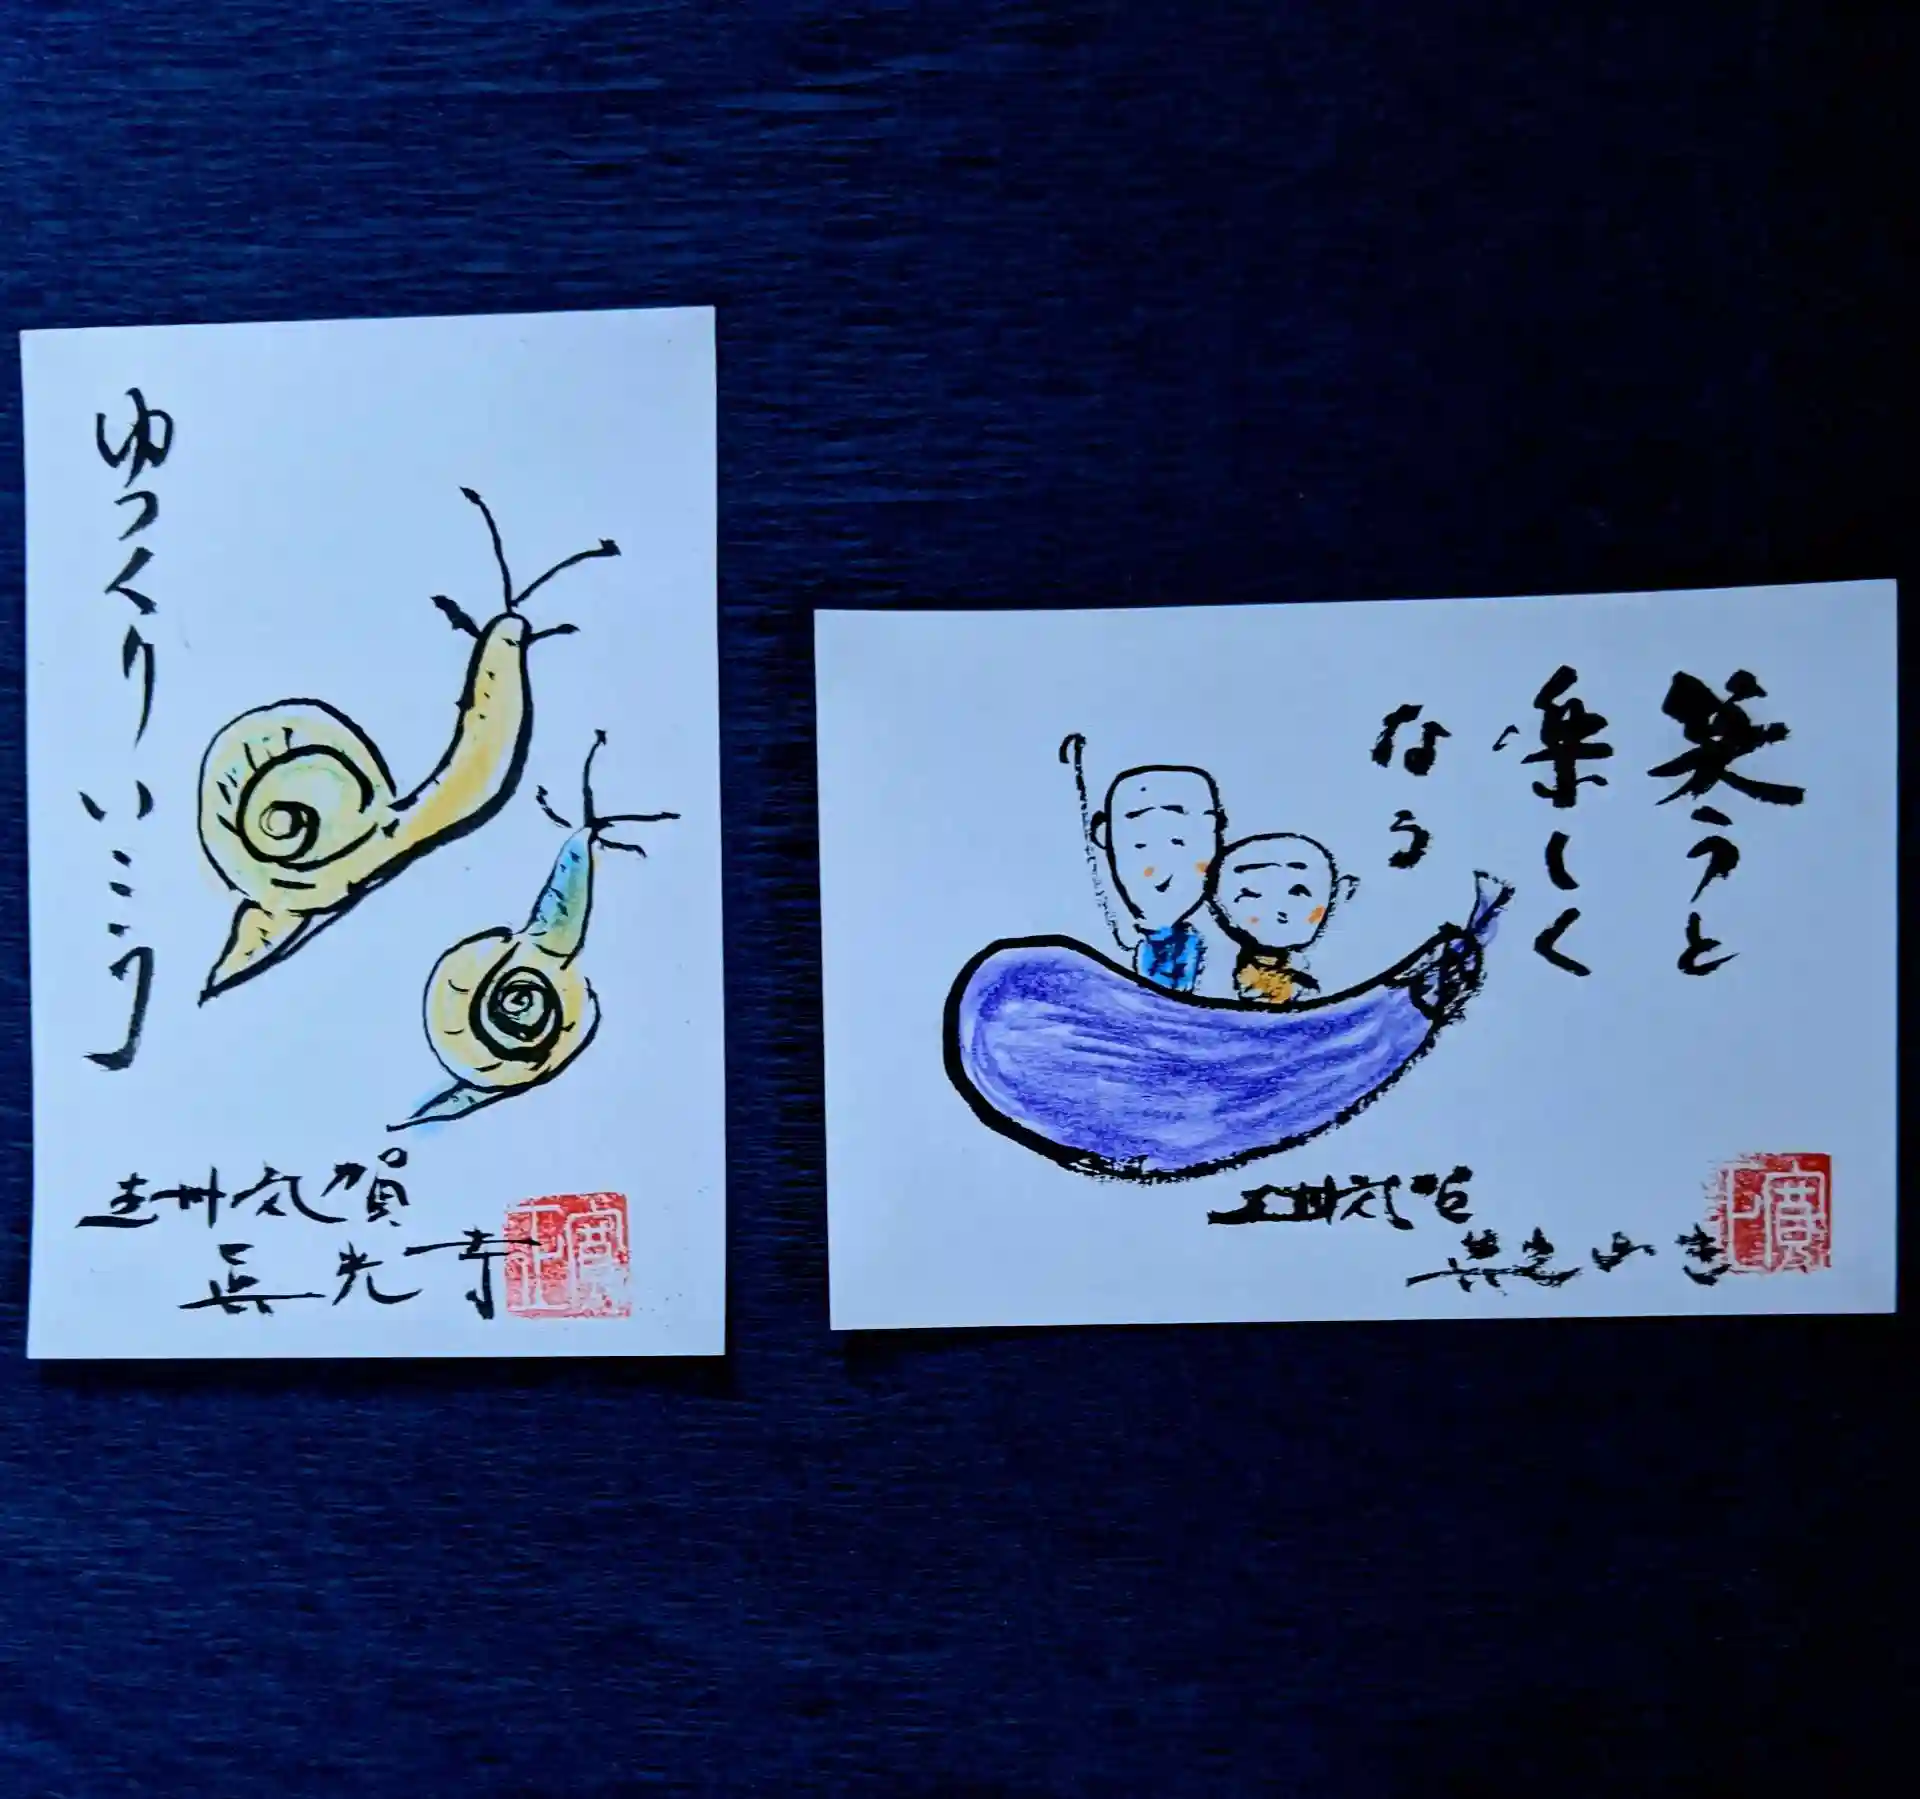 ゆっくりいこう
遠州気賀
長光寺
笑うと
楽しく
なる
遠州気賀